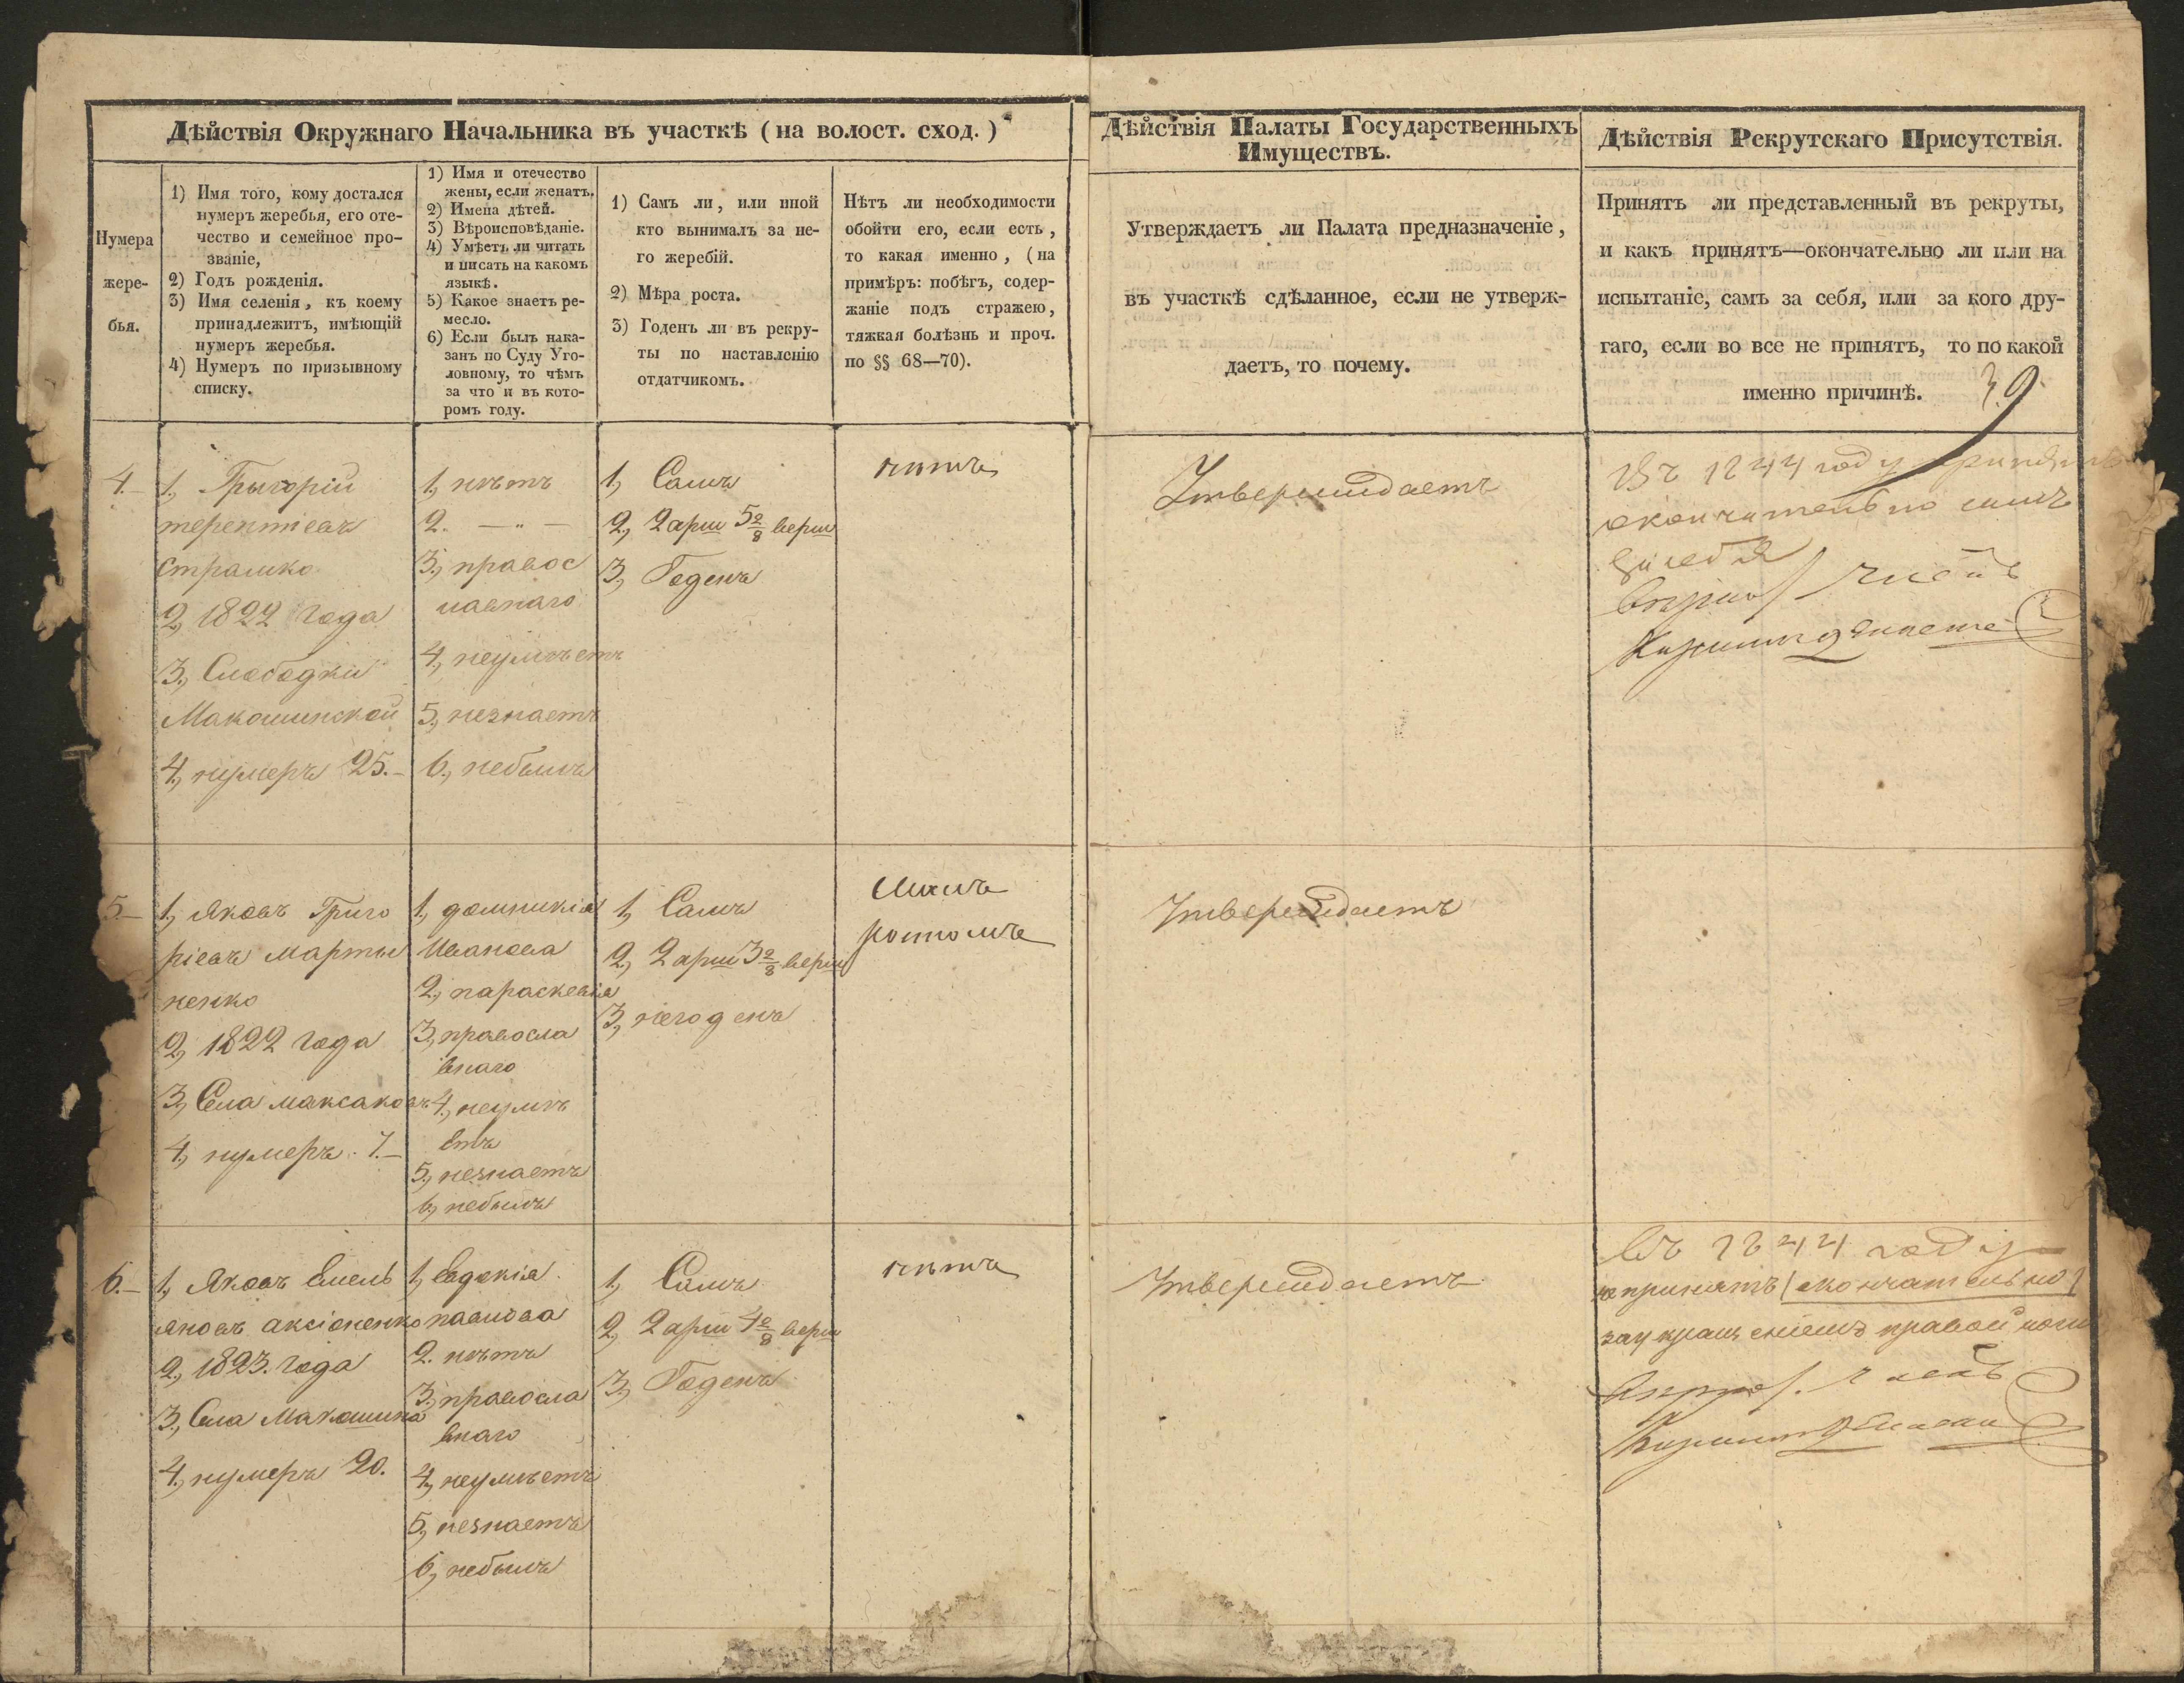 Дѣйствія Окружнаго Начальника въ участкѣ (на волост. сход.)
Нумера
жере-
бья.
1) Имя того, кому достался
нумеръ жеребья, его оте-
чество и семейное про-
званіе,
2) Годъ рожденія.
3) Имя селенія, къ коему
принадлежитъ, имѣющій
нумеръ жеребья.
4) Нумеръ по призывному
списку.
1) Имя и отечество
жены, если женатъ.
2) Имена дѣтей.
3) Вѣроисповѣданіе.
4) Умѣетъ ли читать
и писать на какомъ
языкѣ.
5) Какое знаетъ ре-
месло.
6) Если былъ нака-
занъ по Суду Уго-
ловному, то чѣмъ
за что и въ кото-
ромъ году.
1) Самъ ли, или иной
кто вынималъ за не-
го жеребій.
2) Мѣра роста.
3) Годенъ ли въ рекру-
ты по наставленію
отдатчикомъ.
Нѣтъ ли необходимости
обойти его, если есть,
то какая именно, (на
примѣръ: побѣгъ, содер-
жаніе подъ стражею,
тяжкая болѣзнь и проч.
по §§ 68—70).
4.
1, Григорій
терентіевъ
страшко
2, 1822 года
3, Слободки
Макошинской
4, нумеръ 25.
1, нѣтъ
2. — " —
3, правос
лавнаго
4, неумѣетъ
5, незнаетъ
6, небылъ
1, Самъ
2, 2 арш 5 2/8 верш
3, Годенъ
нѣтъ
5.
1, Яковъ Григо
ріевъ Марты
ненко
2, 1822 года
3, Села Максаковъ
4, нумеръ 7.
1, домникія
Иванова
2, параскевія
3, правосла
внаго
4, неумѣ
етъ
5, незнаетъ
6, небылъ
1, Самъ
2, 2 арш 3 2/8 верш
3, негоденъ
Малъ
ростомъ
6.
1, Яковъ Емель
яновъ аксіоненко
2, 1823. года
3, Села Макошина
4, нумеръ 20.
1, Евдокія
павлова
2. нѣтъ
3, правосла
внаго
4, неумѣетъ
5, незнаетъ
6, небылъ
1, Самъ
2, 2 арш 4 2/8 верш
3, Годенъ
нѣтъ
Дѣйствія Палаты Государственныхъ
Имуществъ.
Утверждаетъ ли Палата предназначеніе,
въ участкѣ сдѣланное, если не утверж-
даетъ, то почему.
Утверждаетъ
Утверждаетъ
Утверждаетъ
Дѣйствія Рекрутскаго Присутствія.
Принятъ ли представленный въ рекруты,
и какъ принятъ—окончательно ли или на
испытаніе, самъ за себя, или за кого дру-
гаго, если во все не принятъ, то по какой
именно причинѣ.
39
Въ 1844 году принятъ
окончательно самъ
за себя
членъ
въ 1844 году
не принятъ (окончательно)
правой ноги
членъ